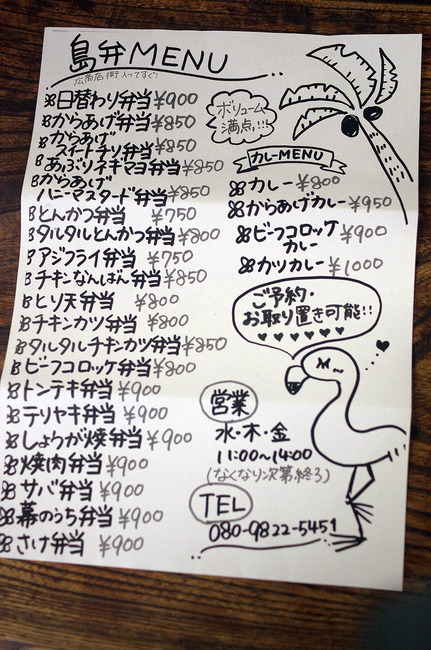 島弁MENU
広商店街入ってすぐ!
日替わり弁当 ¥900
からあげ弁当 ¥850
からあげ
スイートチリ弁当 ¥850
あぶりネギマヨ弁当 ¥850
からあげ
ハニーマスタード弁当 ¥850
とんかつ弁当 ¥750
タルタルとんかつ弁当 ¥800
アジフライ弁当 ¥750
チキンなんばん弁当 ¥850
とり天弁当 ¥800
チキンカツ弁当 ¥800
タルタルチキンカツ弁当 ¥850
ビーフコロッケ弁当 ¥800
トンテキ弁当 ¥900
テリヤキ弁当 ¥900
しょうが焼弁当 ¥900
焼肉弁当 ¥900
サバ弁当 ¥900
幕のうち弁当 ¥900
さけ弁当 ¥900
ボリューム
満点!!!
カレーMENU
カレー ¥800
からあげカレー ¥950
ビーフコロッケ
カレー ¥900
カツカレー ¥1000
ご予約・
お取り置き可能!!
営業
水・木・金
11:00~14:00
(なくなり次第終了)
TEL
080-9822-5451